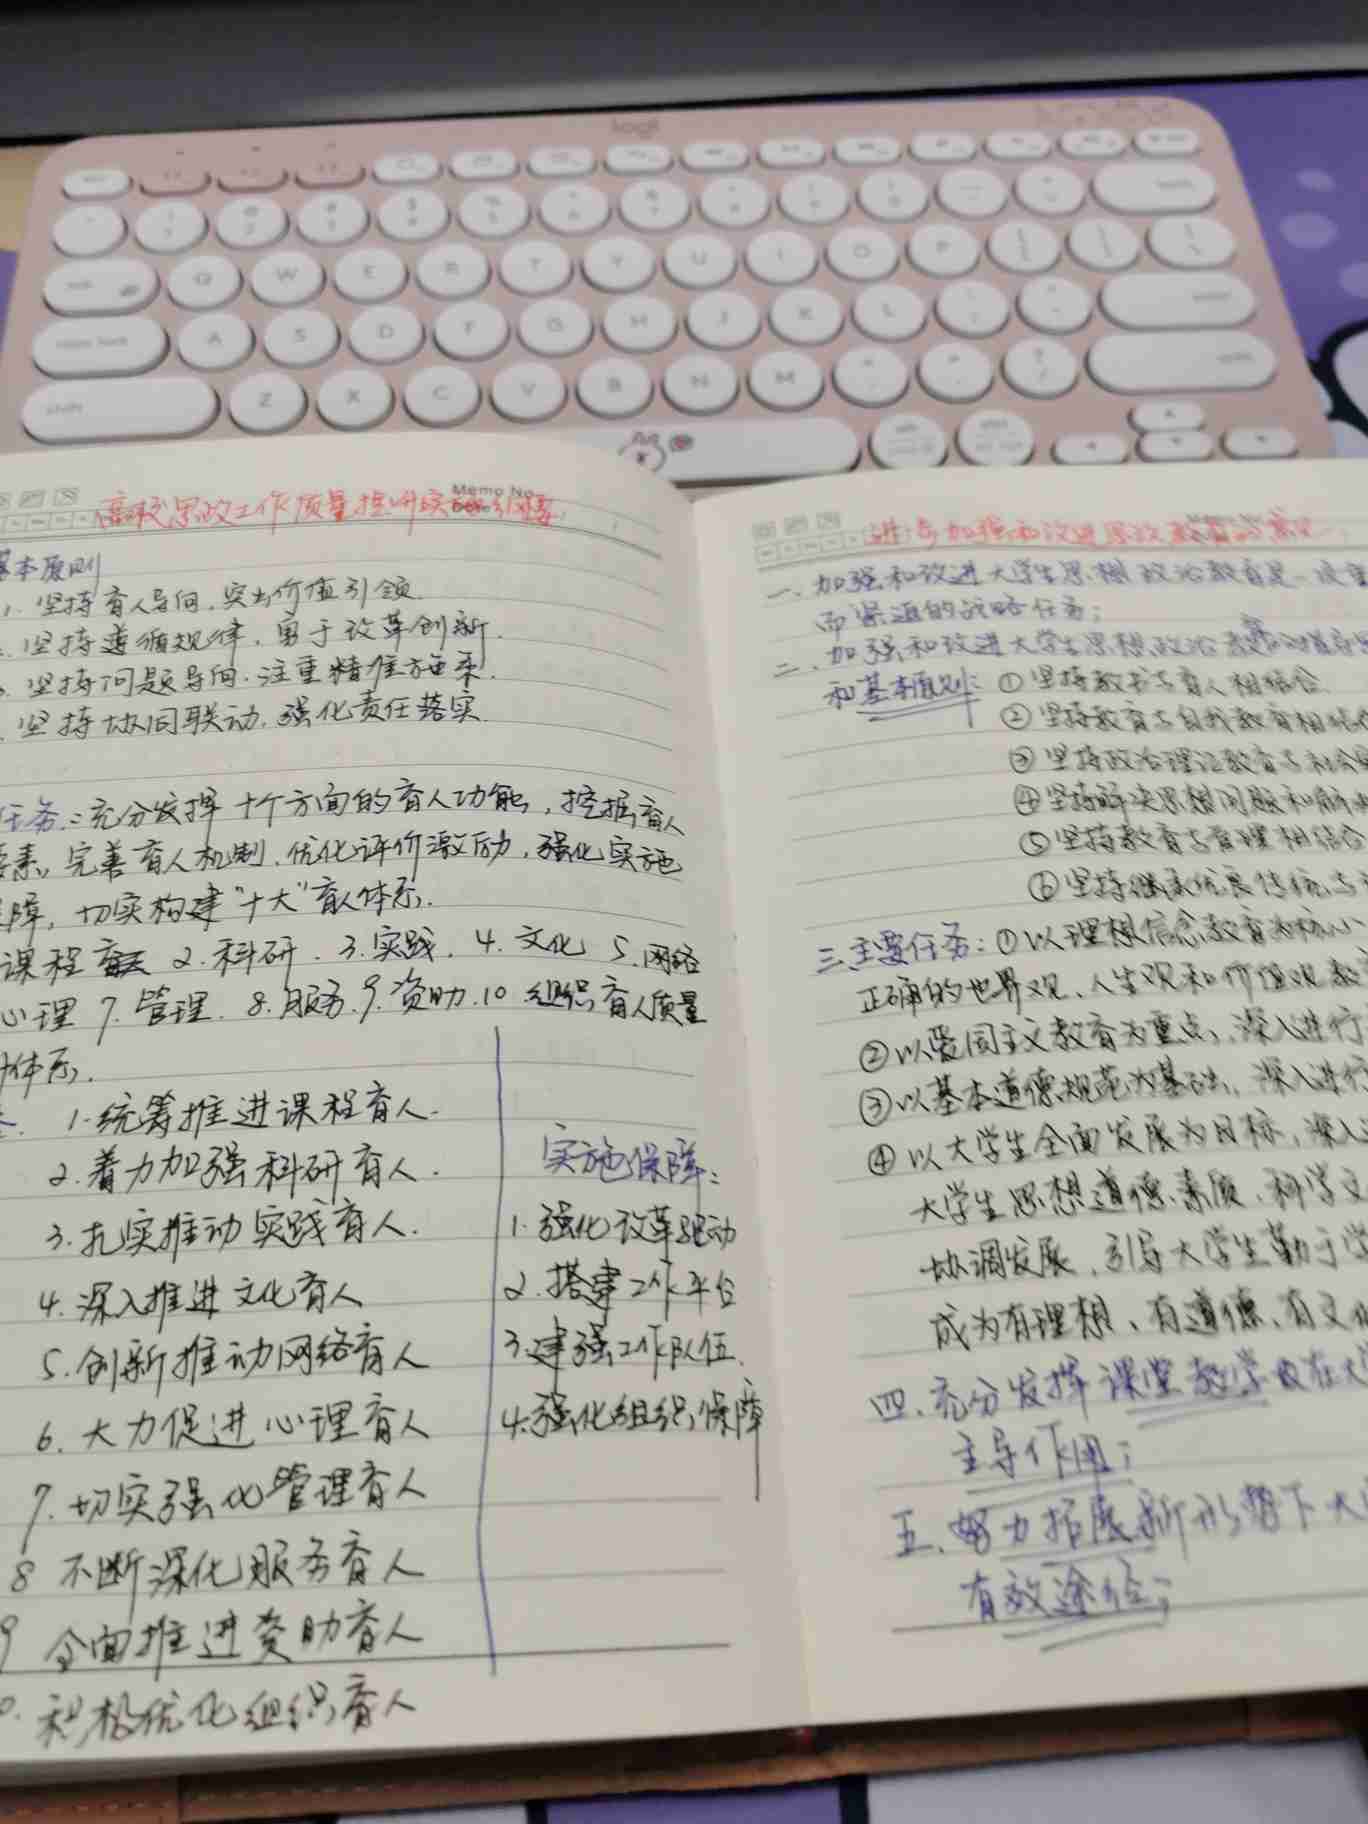 logi
Q W E R T Y U I O P
A S D F G H J K L
shift Z X C V B N M
Memo No.
高校思政工作质量提升实施纲要
基本原则
1. 坚持育人导向，突出价值引领
坚持遵循规律，勇于改革创新
坚持问题导向，注重精准施策
坚持协同联动，强化责任落实
任务：充分发挥十个方面的育人功能，挖掘育人
要素，完善育人机制，优化评价激励，强化实施
障，切实构建"十大"育人体系。
课程 2.科研. 3.实践. 4.文化 5.网络
心理 7.管理. 8.服务. 9.资助. 10.组织育人质量
体系.
1.统筹推进课程育人.
2.着力加强科研育人.
3.扎实推动实践育人.
4.深入推进文化育人
5.创新推动网络育人
6.大力促进心理育人
7.切实强化管理育人
8 不断深化服务育人
9 全面推进资助育人
积极优化组织育人
实施保障：
1.强化改革驱动
2.搭建工作平台
3.建强工作队伍.
4.强化组织保障
进一步加强和改进思政教育的意见
一、加强和改进大学生思想政治教育是一项重
而紧迫的战略任务；
二、加强和改进大学生思想政治教育的指导思
和基本原则：①坚持教书与育人相结合
②坚持教育与自我教育相结
③坚持政治理论教育与社会
④坚持解决思想问题和解决
⑤坚持教育与管理相结合
⑥坚持继承优良传统与
三、主要任务：①以理想信念教育为核心
正确的世界观、人生观和价值观教
②以爱国主义教育为重点，深入进行
③以基本道德规范为基础，深入进行
④以大学生全面发展为目标，深入
大学生思想道德素质、科学文
协调发展，引导大学生勤于学
成为有理想、有道德、有文化
四、充分发挥课堂教学在大
主导作用；
五、努力拓展新形势下大
有效途径；